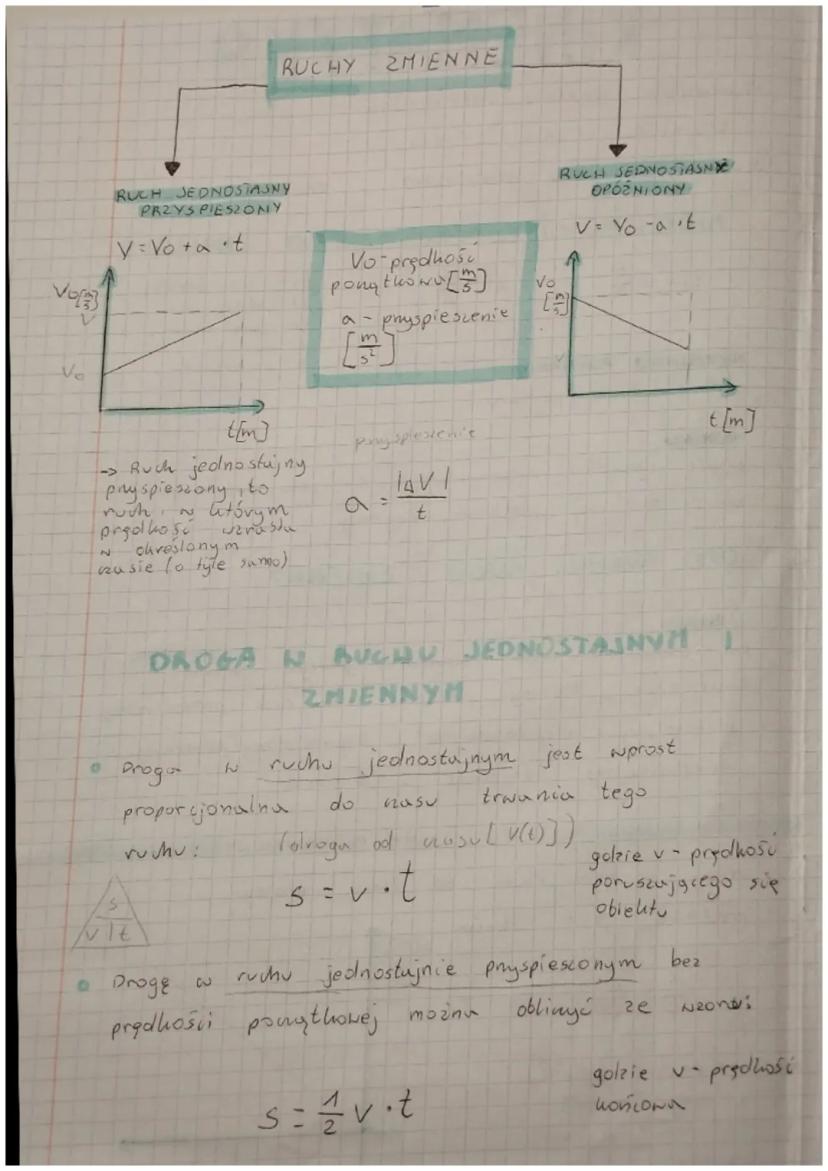 RUCHY ZMIENNE
RUCH JEDNOSTAJNY
PRZYSPIESZONY
V = Vo + a · t
Vo[m/s]
V
Vo
t[m]
Vo - prędkość
początkowa [m/s]
a - przyspieszenie
[m/s²]
RUCH JEDNOSTAJNY
OPÓŹNIONY
V = Vo - a · t
Vo
[m/s]
t[m]
-> Ruch jednostajny
przyspieszony, to
ruch, w którym
prędkość wzrasta
w określonym
czasie (o tyle samo)
przyspieszenie
a = |ΔV| / t
DROGA W RUCHU JEDNOSTAJNYM I
ZMIENNYM
Droga w ruchu jednostajnym jest wprost
proporcjonalna do czasu trwania tego
ruchu: (droga od czasu [V(t)])
s = v · t
gdzie v - prędkość
poruszającego się
obiektu
s
v | t
Drogę w ruchu jednostajnie przyspieszonym bez
prędkości początkowej można obliczyć ze wzoru:
s = 1/2 v · t
gdzie v - prędkość
końcowa